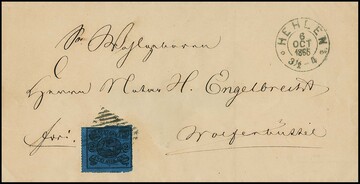 Sr Wohlgeboren
Herrn Notar H. Engelbrecht
frei.
Wolfenbüttel
HEHLEN
6
OCT
1865
3½-4